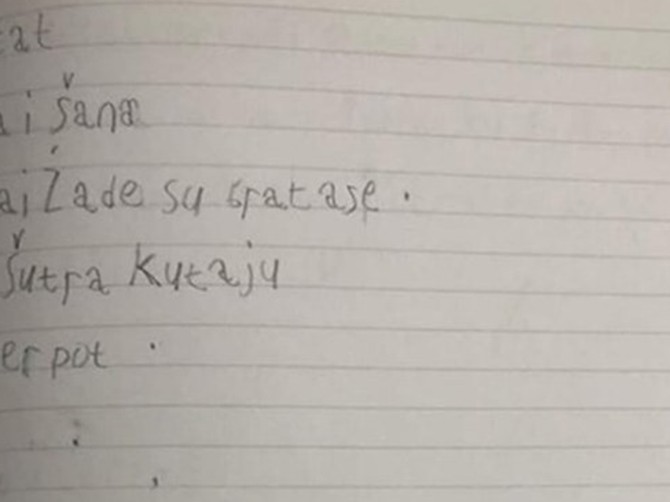 at
i šana
ai Zade su spatase.
šutra kutaju
er pot.